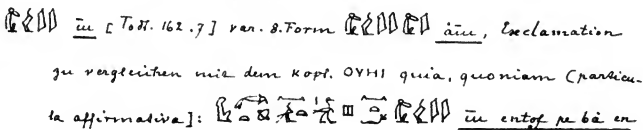 īu [Todt. 162.7] var. d. Form āīu, Exclamation
zu vergleichen mit dem kopt. ΟΥΗΙ quia, quoniam (particu-
la affirmativa): īu entof pe bà en